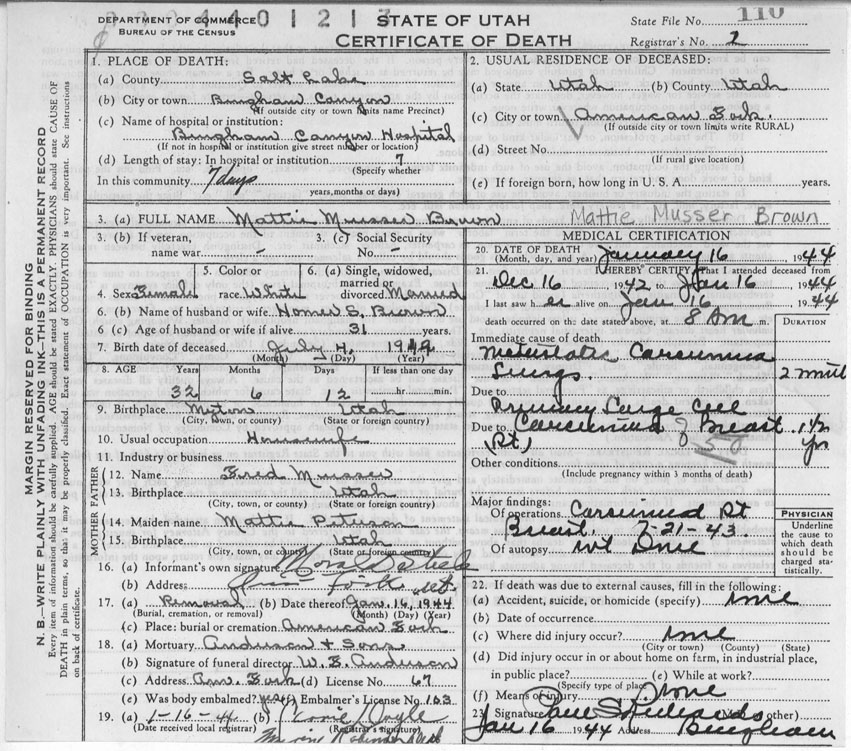 2204401213
DEPARTMENT OF COMMERCE
BUREAU OF THE CENSUS
STATE OF UTAH
CERTIFICATE OF DEATH
State File No. 110
Registrar's No. 2
MARGIN RESERVED FOR BINDING
N. B.—WRITE PLAINLY WITH UNFADING INK—THIS IS A PERMANENT RECORD
Every item of information should be carefully supplied. AGE should be stated EXACTLY. PHYSICIANS should state CAUSE OF
DEATH in plain terms, so that it may be properly classified. Exact statement of OCCUPATION is very important. See instructions
on back of certificate.
1. PLACE OF DEATH:
(a) County Salt Lake
(b) City or town Bingham Canyon
(If outside city or town limits name Precinct)
(c) Name of hospital or institution:
Bingham Canyon Hospital
(If not in hospital or institution give street number or location)
(d) Length of stay: In hospital or institution 7
(Specify whether
In this community 7 days
years, months or days)
2. USUAL RESIDENCE OF DECEASED:
(a) State Utah (b) County Utah
(c) City or town American Fork.
(If outside city or town limits write RURAL)
(d) Street No.
(If rural give location)
(e) If foreign born, how long in U. S. A. years.
3. (a) FULL NAME Mattie Musser Brown Mattie Musser Brown
3. (b) If veteran,
name war -
3. (c) Social Security
No. -
4. Sex Female
5. Color or
race White
6. (a) Single, widowed,
married or
divorced Married
6. (b) Name of husband or wife Homer S. Brown
6 (c) Age of husband or wife if alive 31 years.
7. Birth date of deceased July 4, 19
(Month) (Day) (Year)
8. AGE Years Months Days If less than one day
32 6 12 hr. min.
9. Birthplace Myton Utah
(City, town, or county) (State or foreign country)
10. Usual occupation Housewife
11. Industry or business
FATHER
12. Name Fred Musser
13. Birthplace Utah
(City, town, or county) (State or foreign country)
MOTHER
14. Maiden name Mattie
15. Birthplace Utah
(City, town, or county) (State or foreign country)
16. (a) Informant's own signature
(b) Address Fork
17. (a) Removal (b) Date thereof Jan. 16, 1944
(Burial, cremation, or removal) (Month) (Day) (Year)
(c) Place: burial or cremation American Fork
18. (a) Mortuary Anderson & Sons
(b) Signature of funeral director W. E. Anderson
(c) Address Am. Fork (d) License No. 67
(e) Was body embalmed? yes (f) Embalmer's License No. 163
19. (a) 1-16-44 (b)
(Date received local registrar) (Registrar's signature)
MEDICAL CERTIFICATION
20. DATE OF DEATH January 16 1944
(Month, day, and year)
21. I HEREBY CERTIFY That I attended deceased from
Dec 16 1942 to Jan 16 1944
I last saw her alive on Jan 16 1944
death occurred on the date stated above, at 8 AM m.
DURATION
Immediate cause of death
Metastatic Carcinoma
Lungs. 2
Due to
Primary Large Cell
Due to Carcinoma of Breast 1 1/2
(Rt) yr
Other conditions
(Include pregnancy within 3 months of death)
Major findings:
Of operations Carcinoma Rt
Breast. 7-21-43.
Of autopsy not Done
PHYSICIAN
Underline
the cause to
which death
should be
charged sta-
tistically.
22. If death was due to external causes, fill in the following:
(a) Accident, suicide, or homicide (specify) none
(b) Date of occurrence
(c) Where did injury occur? none
(City or town) (County) (State)
(d) Did injury occur in or about home on farm, in industrial place,
in public place? (e) While at work?
(Specify type of place)
(f) Means of injury none
23 Signature Paul S. Richards other)
Jan 16 1944 Address Bingham